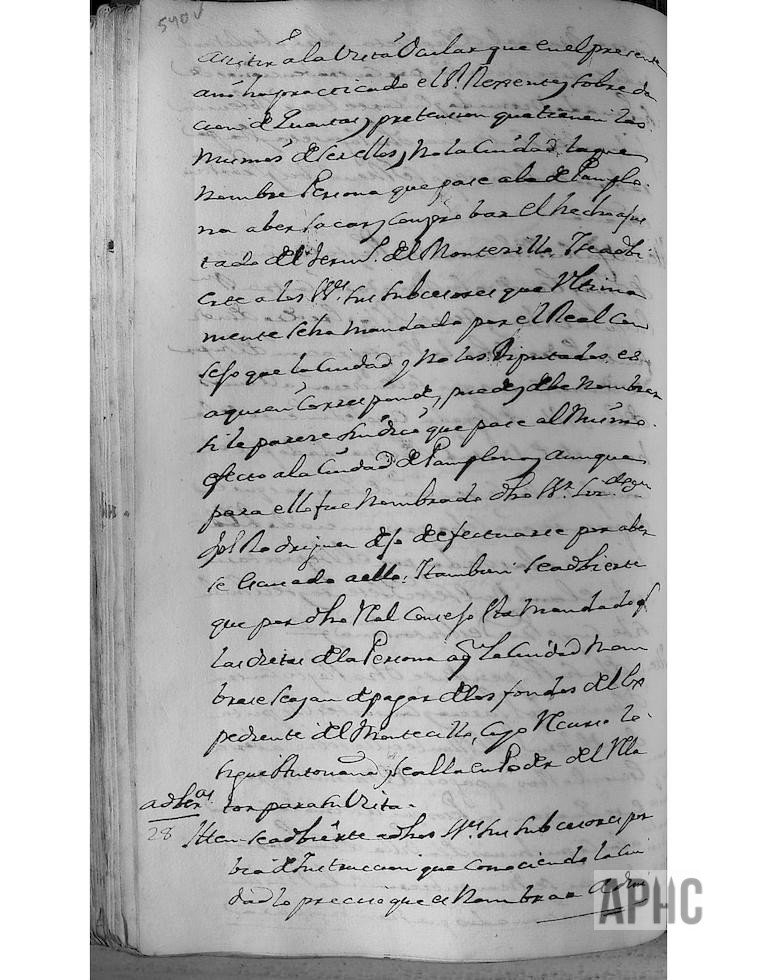 540v
asistir à la Vista Ocular que en el presente
año ha practicado el Sr. Rexente, sobre da
cion de Quentas, pretension que tienen los
mismos de ser ellos, y no la Ciudad, la que
Nombre Persona que pase a la de Pamplo-
na a ver sacar, y comprobar el hecho ajus
tado del del Montecillo, Y se adbi
erte a los SSres. sus subcesores que Vltima
mente se ha mandado por el Real Con
sejo que la Ciudad, y no los Diputados, es
a quien corresponde, puede, y debe Nombrar
si le parece Sindico que pase al mismo
efecto a la Ciudad de Pamplona, y aunque
para ello fue Nombrado dho Sr.
Rodriguez dejo de efectuarse por aber
se a ello: Y tambien se adbierte
que por dho Rl Consejo esta mandado q
las dietas de la Persona a qn la Ciudad Nom
brase se ayan de pagar de los fondos del Ex
pediente del Montecillo, cuyo Recurso lo
sigue y se alla en Poder del Rela
tor para su Vista.
adbers.
28 Itten se adbierte a dhos SSres. sus subcesores por
bia de Instruccion que conociendo la Ciu
dad lo preciso que es Nombrar
APHC